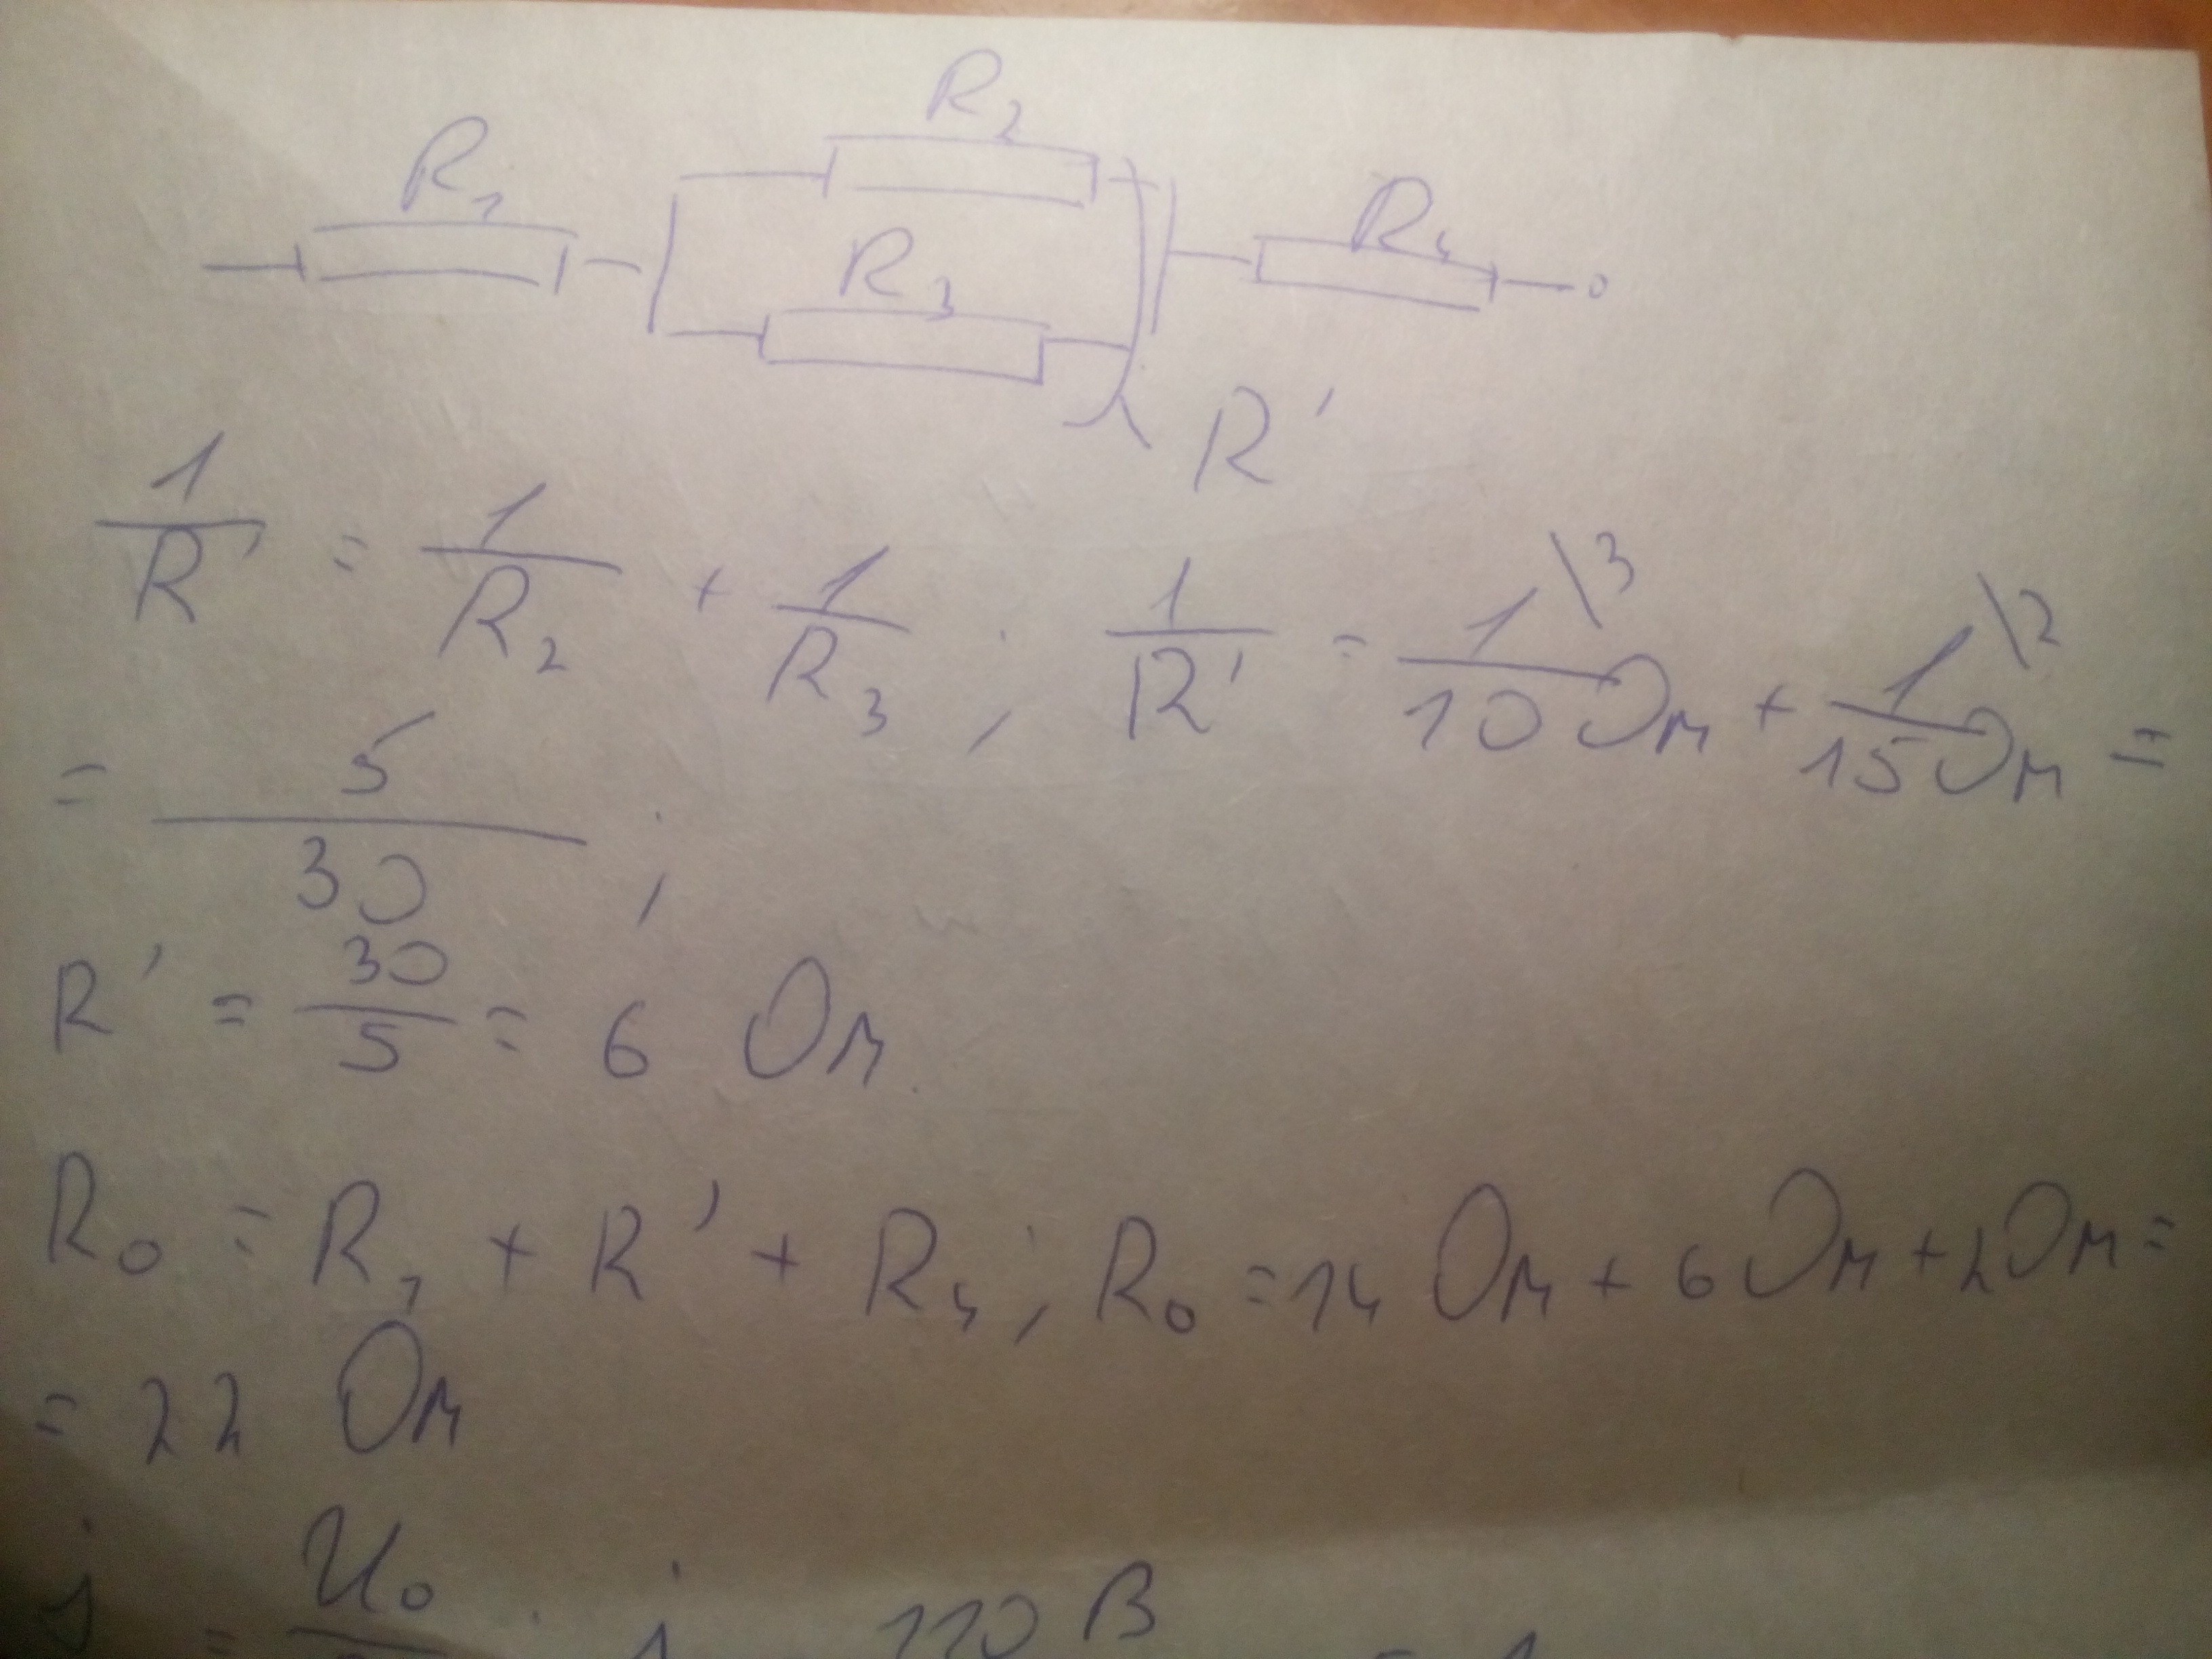 R₁ R₂ R₃ R₄
R'
1/R' = 1/R₂ + 1/R₃ ; 1/R' = 1\3/10 Ом + 1\2/15 Ом =
= 5/30 ;
R' = 30/5 = 6 Ом
R₀ = R₁ + R' + R₄ ; R₀ = 14 Ом + 6 Ом + 2 Ом =
= 22 Ом
= U₀ ; 110 В =